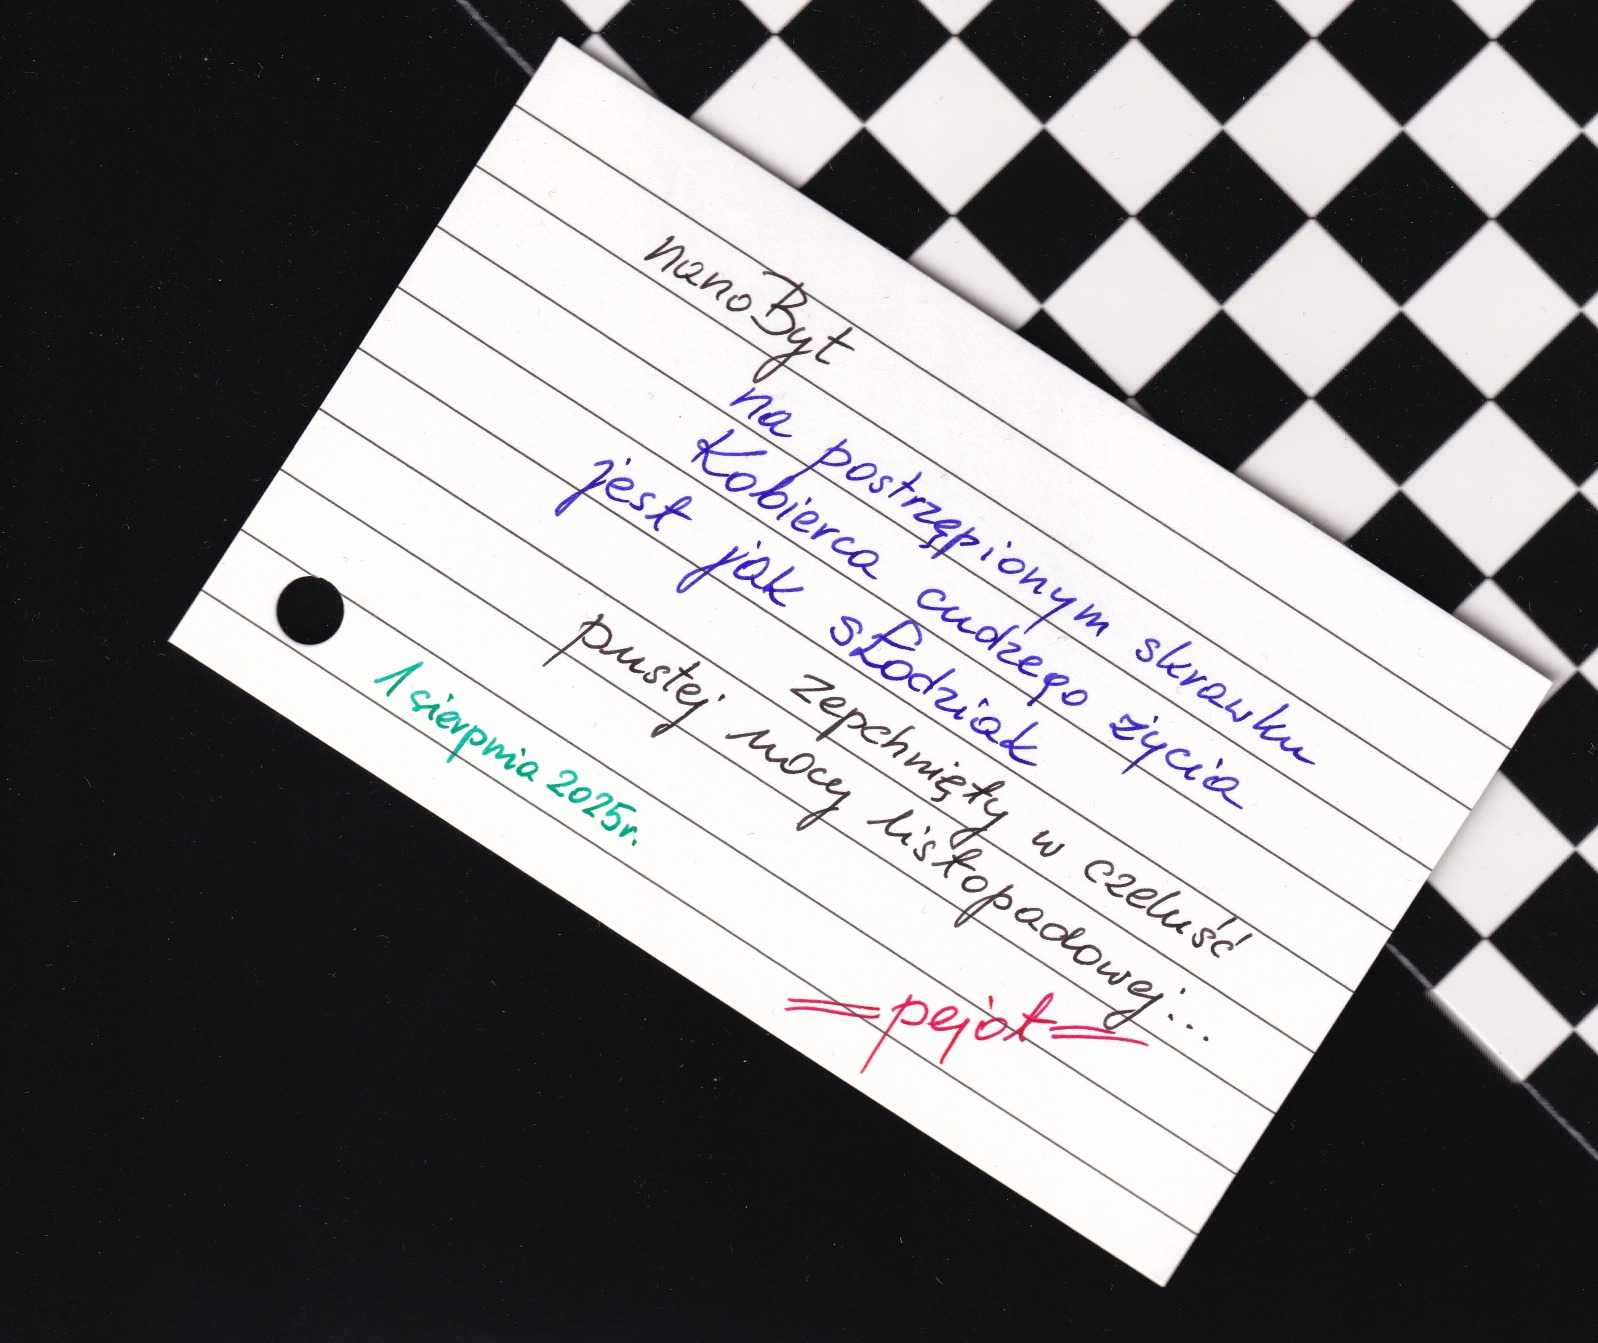 nanoByt
na postrzępionym skrawku
Kobierca cudzego życia
jest jak słodziak
zepchnięty w czeluść
pustej nocy listopadowej...
1 sierpnia 2025r.
=pejot=